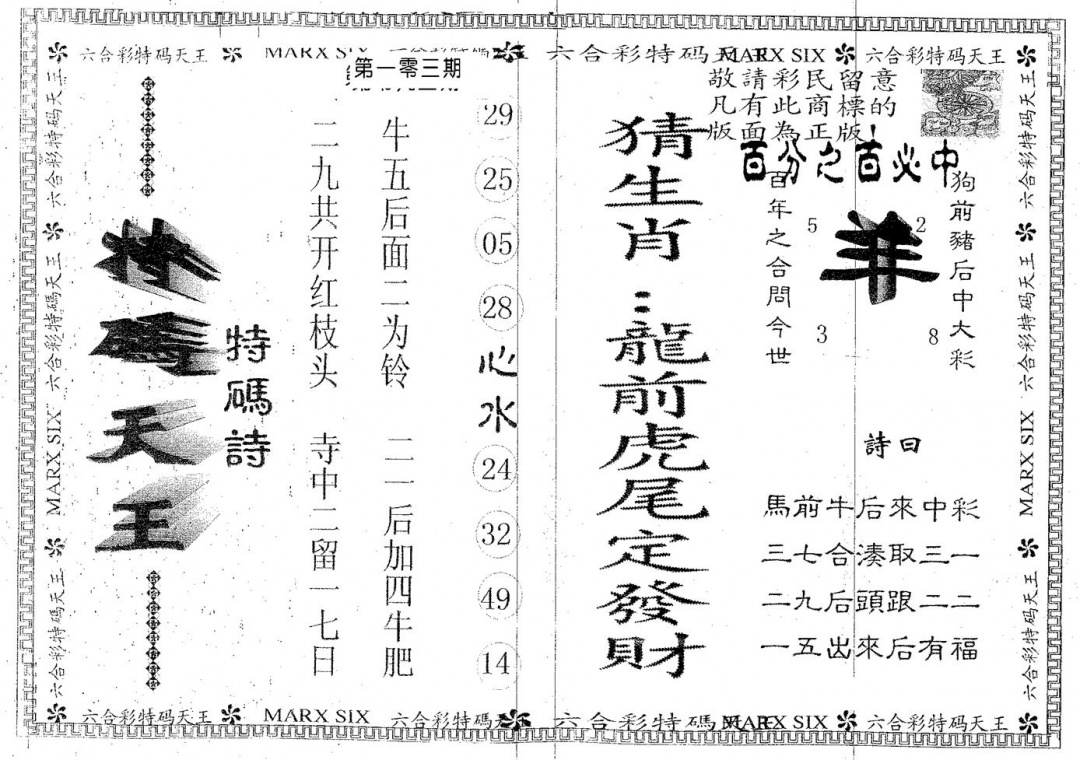 六合彩特码天王 MARX SIX 六合彩特碼天王 六合彩特码天王 MARX SIX 六合彩特码天王
第一零三期
敬請彩民留意
凡有此商標的
版面為正版!
百分之百必中
狗前豬后中大彩
羊
5 2
3 8
百年之合問今世
詩曰
馬前牛后來中彩
三七合湊取三一
二九后頭跟二二
一五出來后有福
猜生肖:龍前虎尾定發財
29
25
05
28
心水
24
32
49
14
牛五后面二为铃 二一后加四牛肥
二九共开红枝头 寺中二留一七日
特碼詩
特碼天王
六合彩特码天王 六合彩特碼天王 MARX SIX 六合彩特码天王
六合彩特码天王 六合彩特碼天王 MARX SIX 六合彩特码天王
六合彩特码天王 MARX SIX 六合彩特碼天王 六合彩特碼 MARX SIX 六合彩特码天王